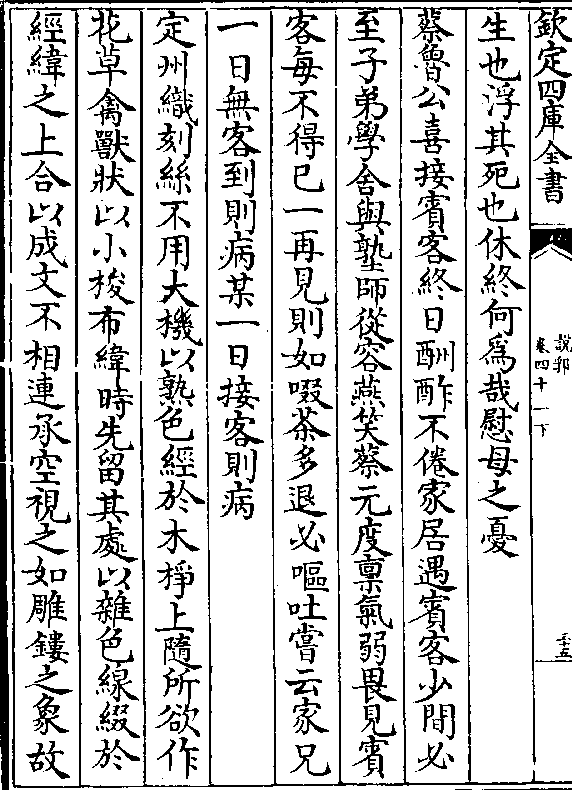 欽定四庫全書
說郛
卷四十一下
三十五
生也浮其死也休終何為哉慰母之憂
蔡魯公喜接賓客終日酬酢不倦家居遇賓客少間必
至子弟學舍與塾師從容燕笑蔡元度禀氣弱畏見賓
客每不得已一再見則如啜茶多退必嘔吐嘗云家兄
一日無客到則病某一日接客則病
定州織刻絲不用大機以熟色經於木棦上隨所欲作
花草禽獸狀以小梭布緯時先留其處以雜色線綴於
經緯之上合以成文不相連承空視之如雕鏤之象故